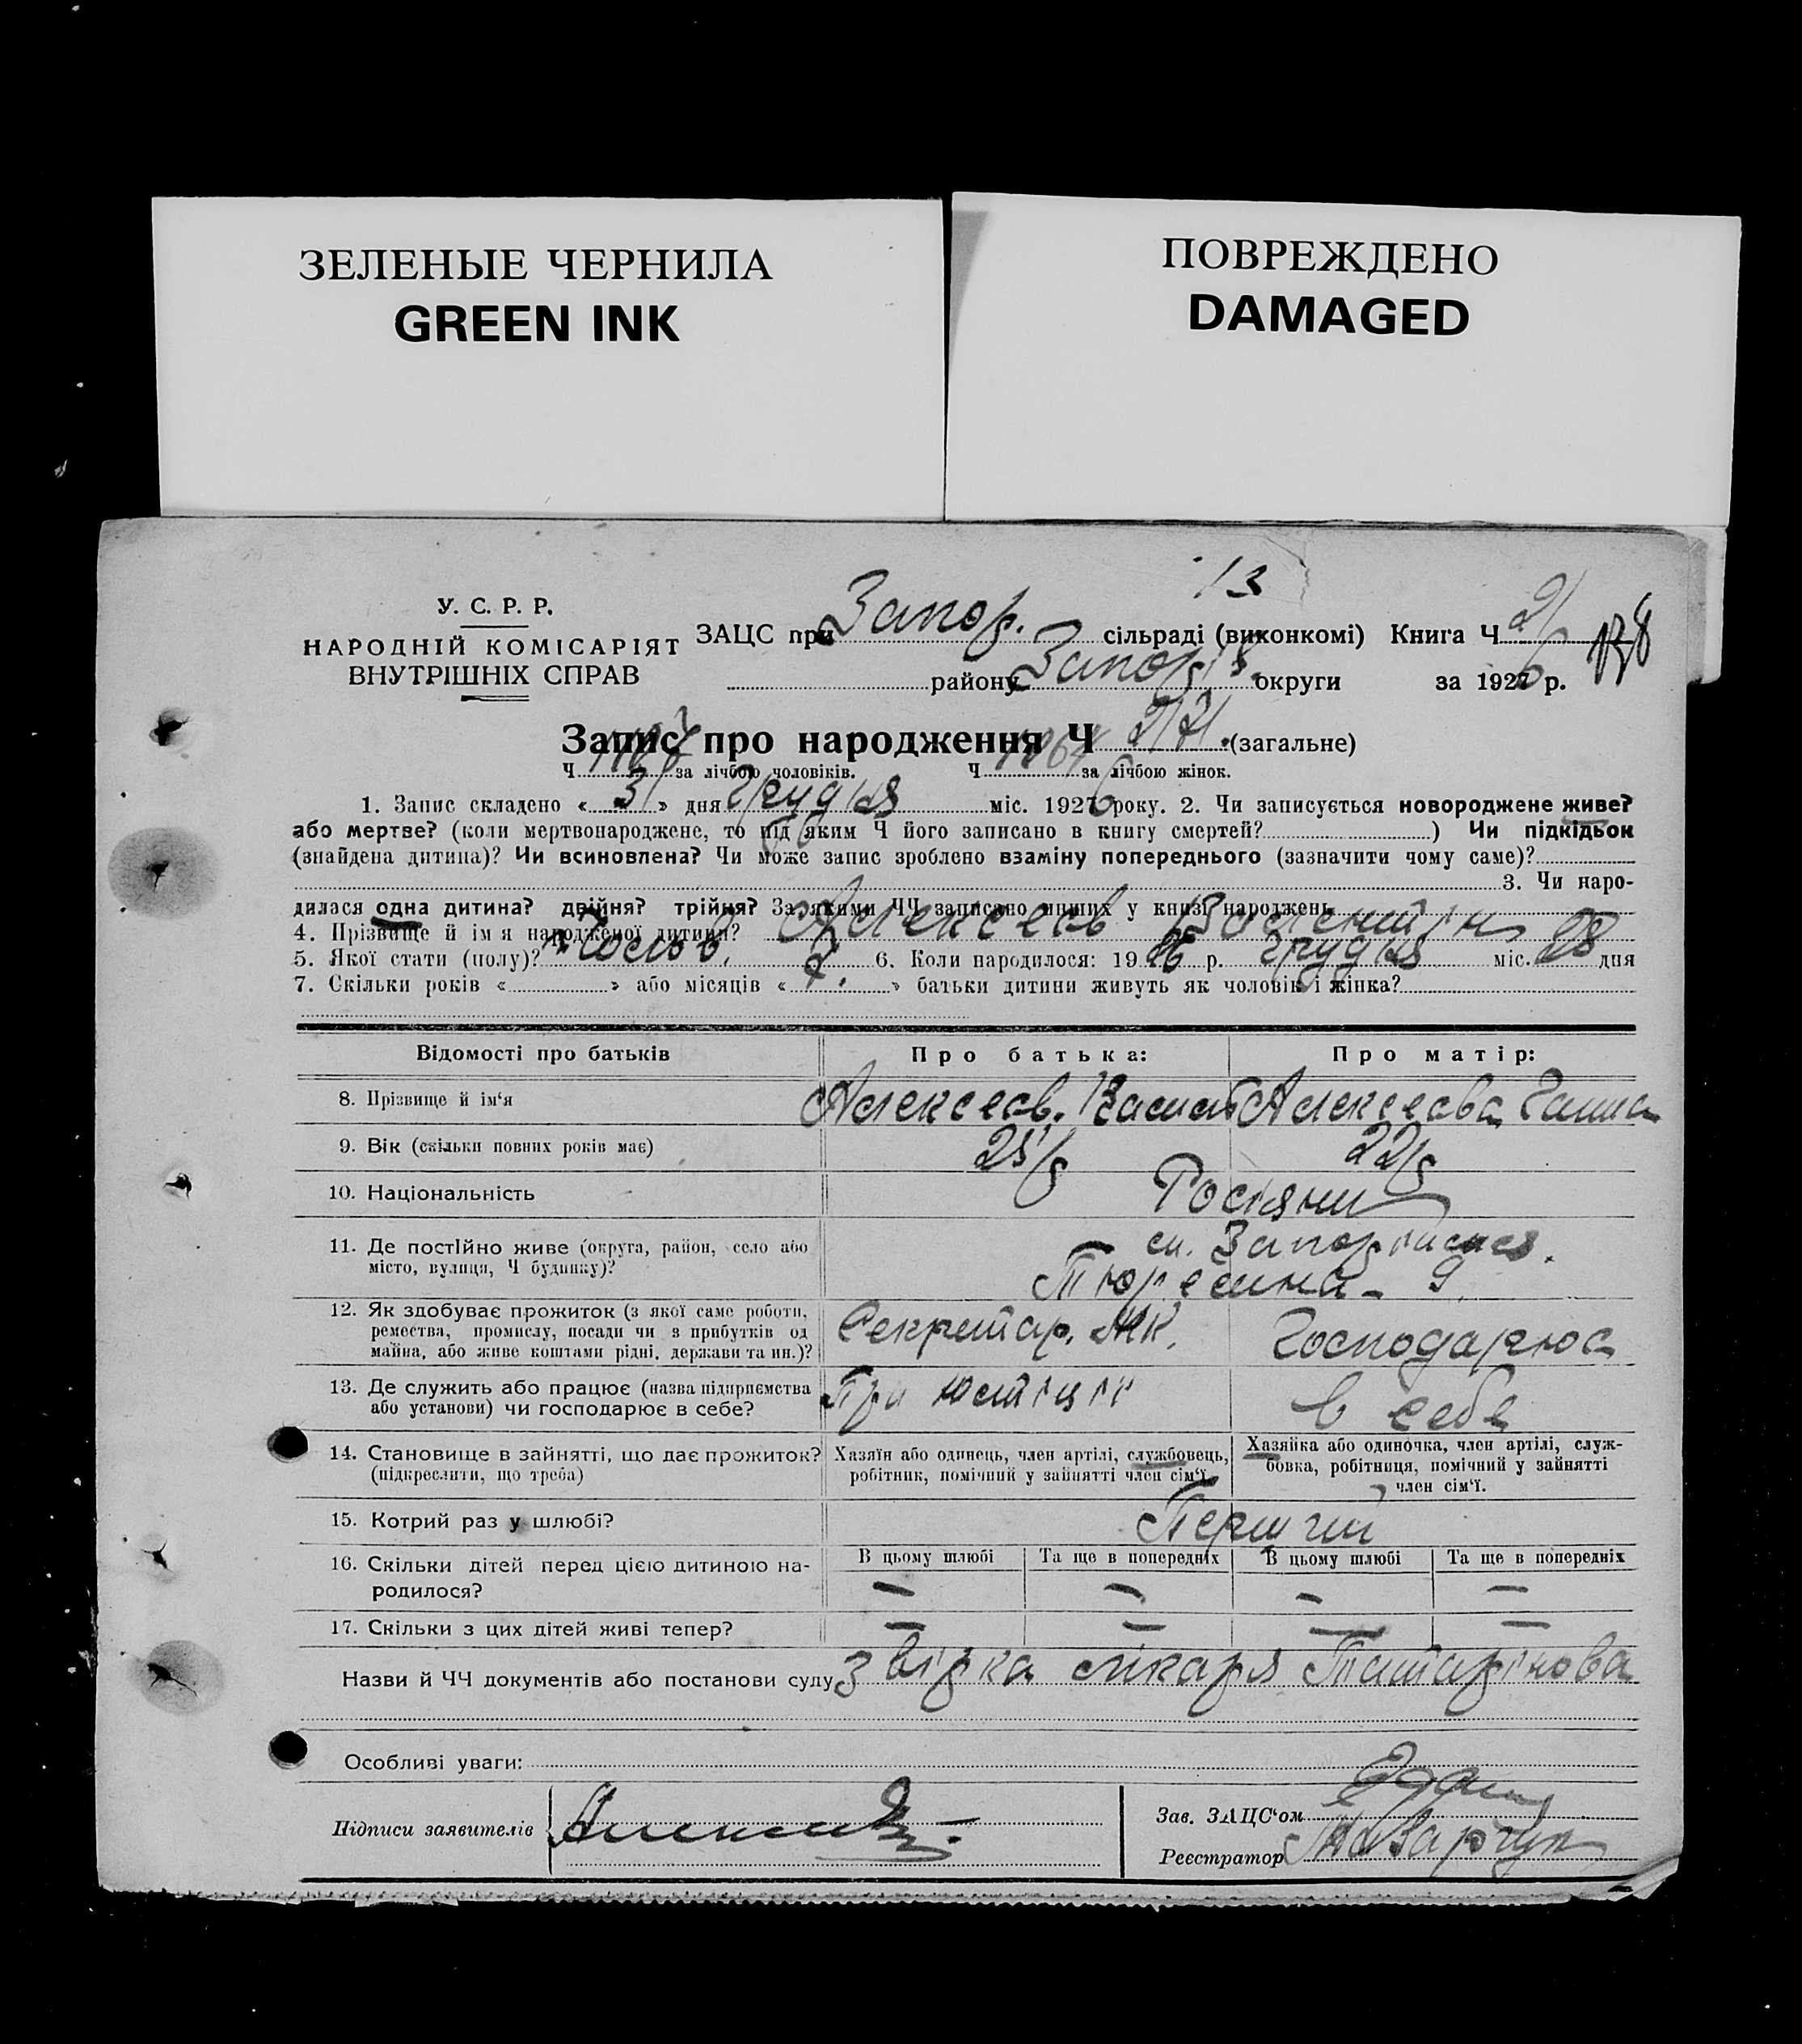 ЗЕЛЕНЫЕ ЧЕРНИЛА
GREEN INK
ПОВРЕЖДЕНО
DAMAGED
13
У. С. Р. Р.
НАРОДНІЙ КОМІСАРІЯТ
ВНУТРІШНІХ СПРАВ
ЗАЦС при Запор. сільраді (виконкомі) Книга Ч
району Запоріз. округи за 1926 р.
178
Запис про народження Ч 2171. (загальне)
Ч за лічбою чоловіків. Ч 1064 за лічбою жінок.
1. Запис складено « 31 » дня Грудня міс. 1926 року. 2. Чи записується новороджене живе?
або мертве? (коли мертвонароджене, то під яким Ч його записано в книгу смертей? ) Чи підкідьок
(знайдена дитина)? Чи всиновлена? Чи може запис зроблено взаміну попереднього (зазначити чому саме)?
3. Чи наро-
дилася одна дитина? двійня? трійня? За якими ЧЧ записано инших у книзі народжень
4. Прізвище й ім'я народженої дитини? Алексеєв Валентін
5. Якої стати (полу)? Чолов. 6. Коли народилося: 1926 р. Грудня міс. 28 дня
7. Скільки років « » або місяців « 7. » батьки дитини живуть як чоловік і жінка?
Відомості про батьків
Про батька:
Про матір:
8. Прізвище й ім'я Алексеєв. Алексеєва Ганна
9. Вік (скільки повних років має) 25/р 22/р
10. Національність Росіяни
11. Де постійно живе (округа, район, село або
місто, вулиця, Ч будинку)?
9.
12. Як здобуває прожиток (з якої саме роботи,
ремества, промислу, посади чи з прибутків од
майна, або живе коштами рідні, держави та ин.)?
Секретар. МК.
Господарює
13. Де служить або працює (назва підприємства
або установи) чи господарює в себе?
При юстіції
в себе
14. Становище в зайнятті, що дає прожиток?
(підкреслити, що треба)
Хазяїн або одинець, член артілі, службовець,
робітник, помічний у зайнятті член сім'ї.
Хазяйка або одиночка, член артілі, служ-
бовка, робітниця, помічний у зайнятті
член сім'ї.
15. Котрий раз у шлюбі? Перший
16. Скільки дітей перед цією дитиною на-
родилося?
В цьому шлюбі Та ще в попередніх В цьому шлюбі Та ще в попередніх
— — — —
17. Скільки з цих дітей живі тепер? — — — —
Назви й ЧЧ документів або постанови суду звірка лікаря Татарінова
Особливі уваги:
Підписи заявителів
Зав. ЗАЦС'ом
Реєстратор